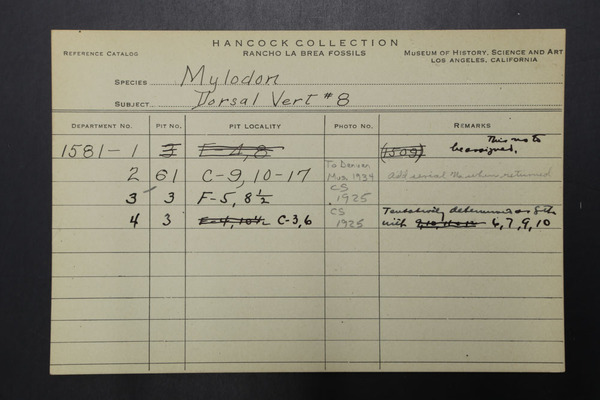 HANCOCK COLLECTION
REFERENCE CATALOG RANCHO LA BREA FOSSILS MUSEUM OF HISTORY, SCIENCE AND ART
LOS ANGELES, CALIFORNIA
SPECIES Mylodon
SUBJECT Dorsal Vert #8
DEPARTMENT No. PIT No. PIT LOCALITY PHOTO No. REMARKS
1581-1 3 F-4,8 (1509) This no to
be assigned.
2 61 C-9, 10-17 To Denver
Mus 1934 Add serial No when returned
3 3 F-5, 8½ CS
1925
4 3 C-3,6 CS
1925 Tentatively determined as 8th
with 6, 7, 9, 10